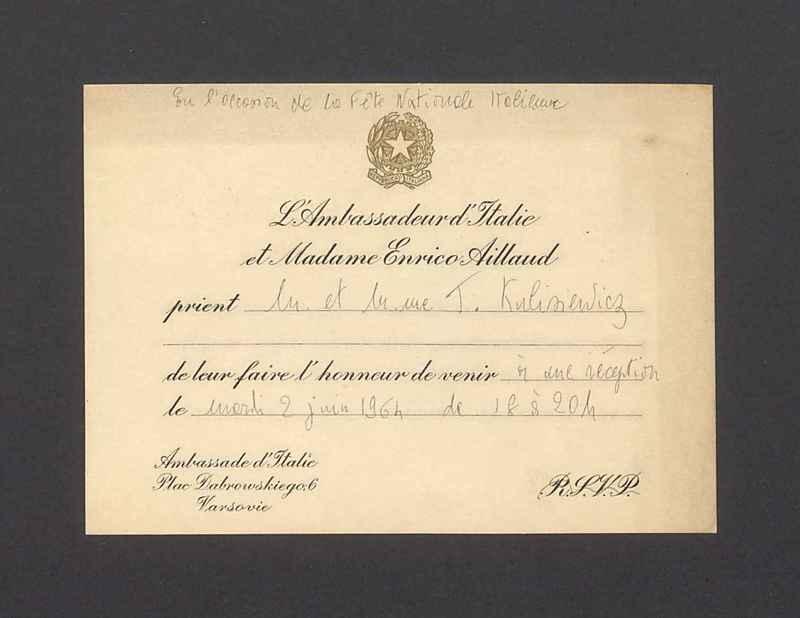 En l'occasion de la Fête Nationale Italienne
L'Ambassadeur d'Italie
et Madame Enrico Aillaud
prient M. et Mme T. Kulisiewicz
de leur faire l'honneur de venir à une réception
le mardi 2 juin 1964 de 18 à 20h
Ambassade d'Italie
Plac Dabrowskiego, 6
Varsovie
R.S.V.P.